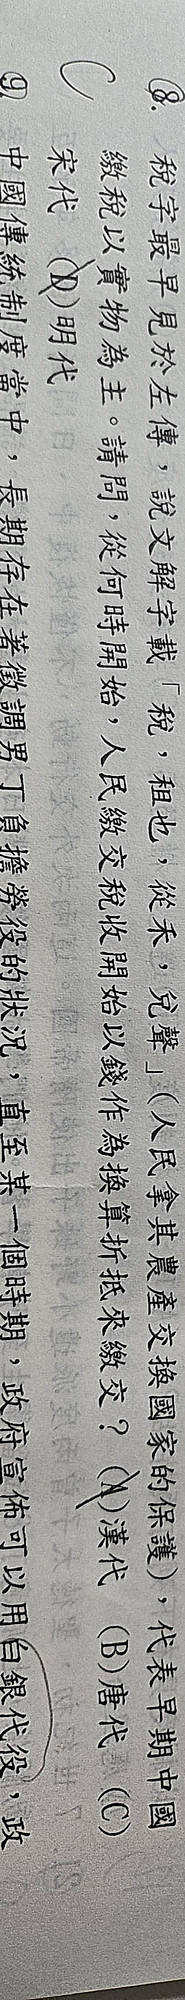 8. 稅字最早見於左傳，說文解字載「稅，租也，從禾，兌聲」(人民拿其農產交換國家的保護)，代表早期中國
繳稅以實物為主。請問，從何時開始，人民繳交稅收開始以錢作為換算折抵來繳交？ (A)漢代 (B)唐代 (C)
C 宋代 (D)明代
9. 中國傳統制度當中，長期存在著徵調男丁負擔勞役的狀況，直至某一個時期，政府宣佈可以用白銀代役，政